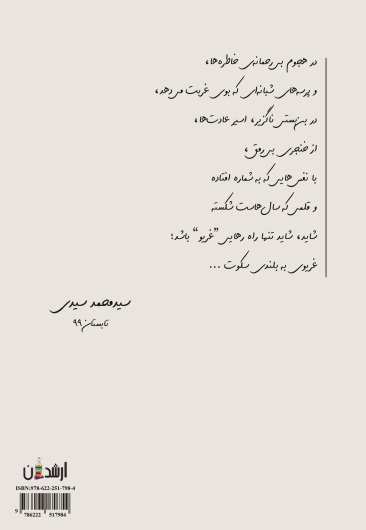 در هجوم بی‌رحمانه‌ی خاطره‌ها،
و پرسه‌های شبانه‌ای که بوی غربت می‌دهد،
در بن‌بستی ناگزیر، اسیر عادت‌ها،
از حنجری بی‌رمق،
با نفس‌هایی که به شماره افتاده
و قلمی که سال‌هاست شکسته
شاید، شاید تنها راه رهایی "غریو" باشد؛
غریوی به بلندی سکوت ...
سیدمحمد سیدی
تابستان ۹۹
ارشدان
ISBN:978-622-251-798-4
9 786222 517984